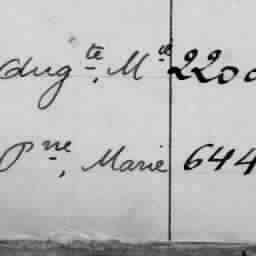 Augte, Mel 220
Pne, Marie 644